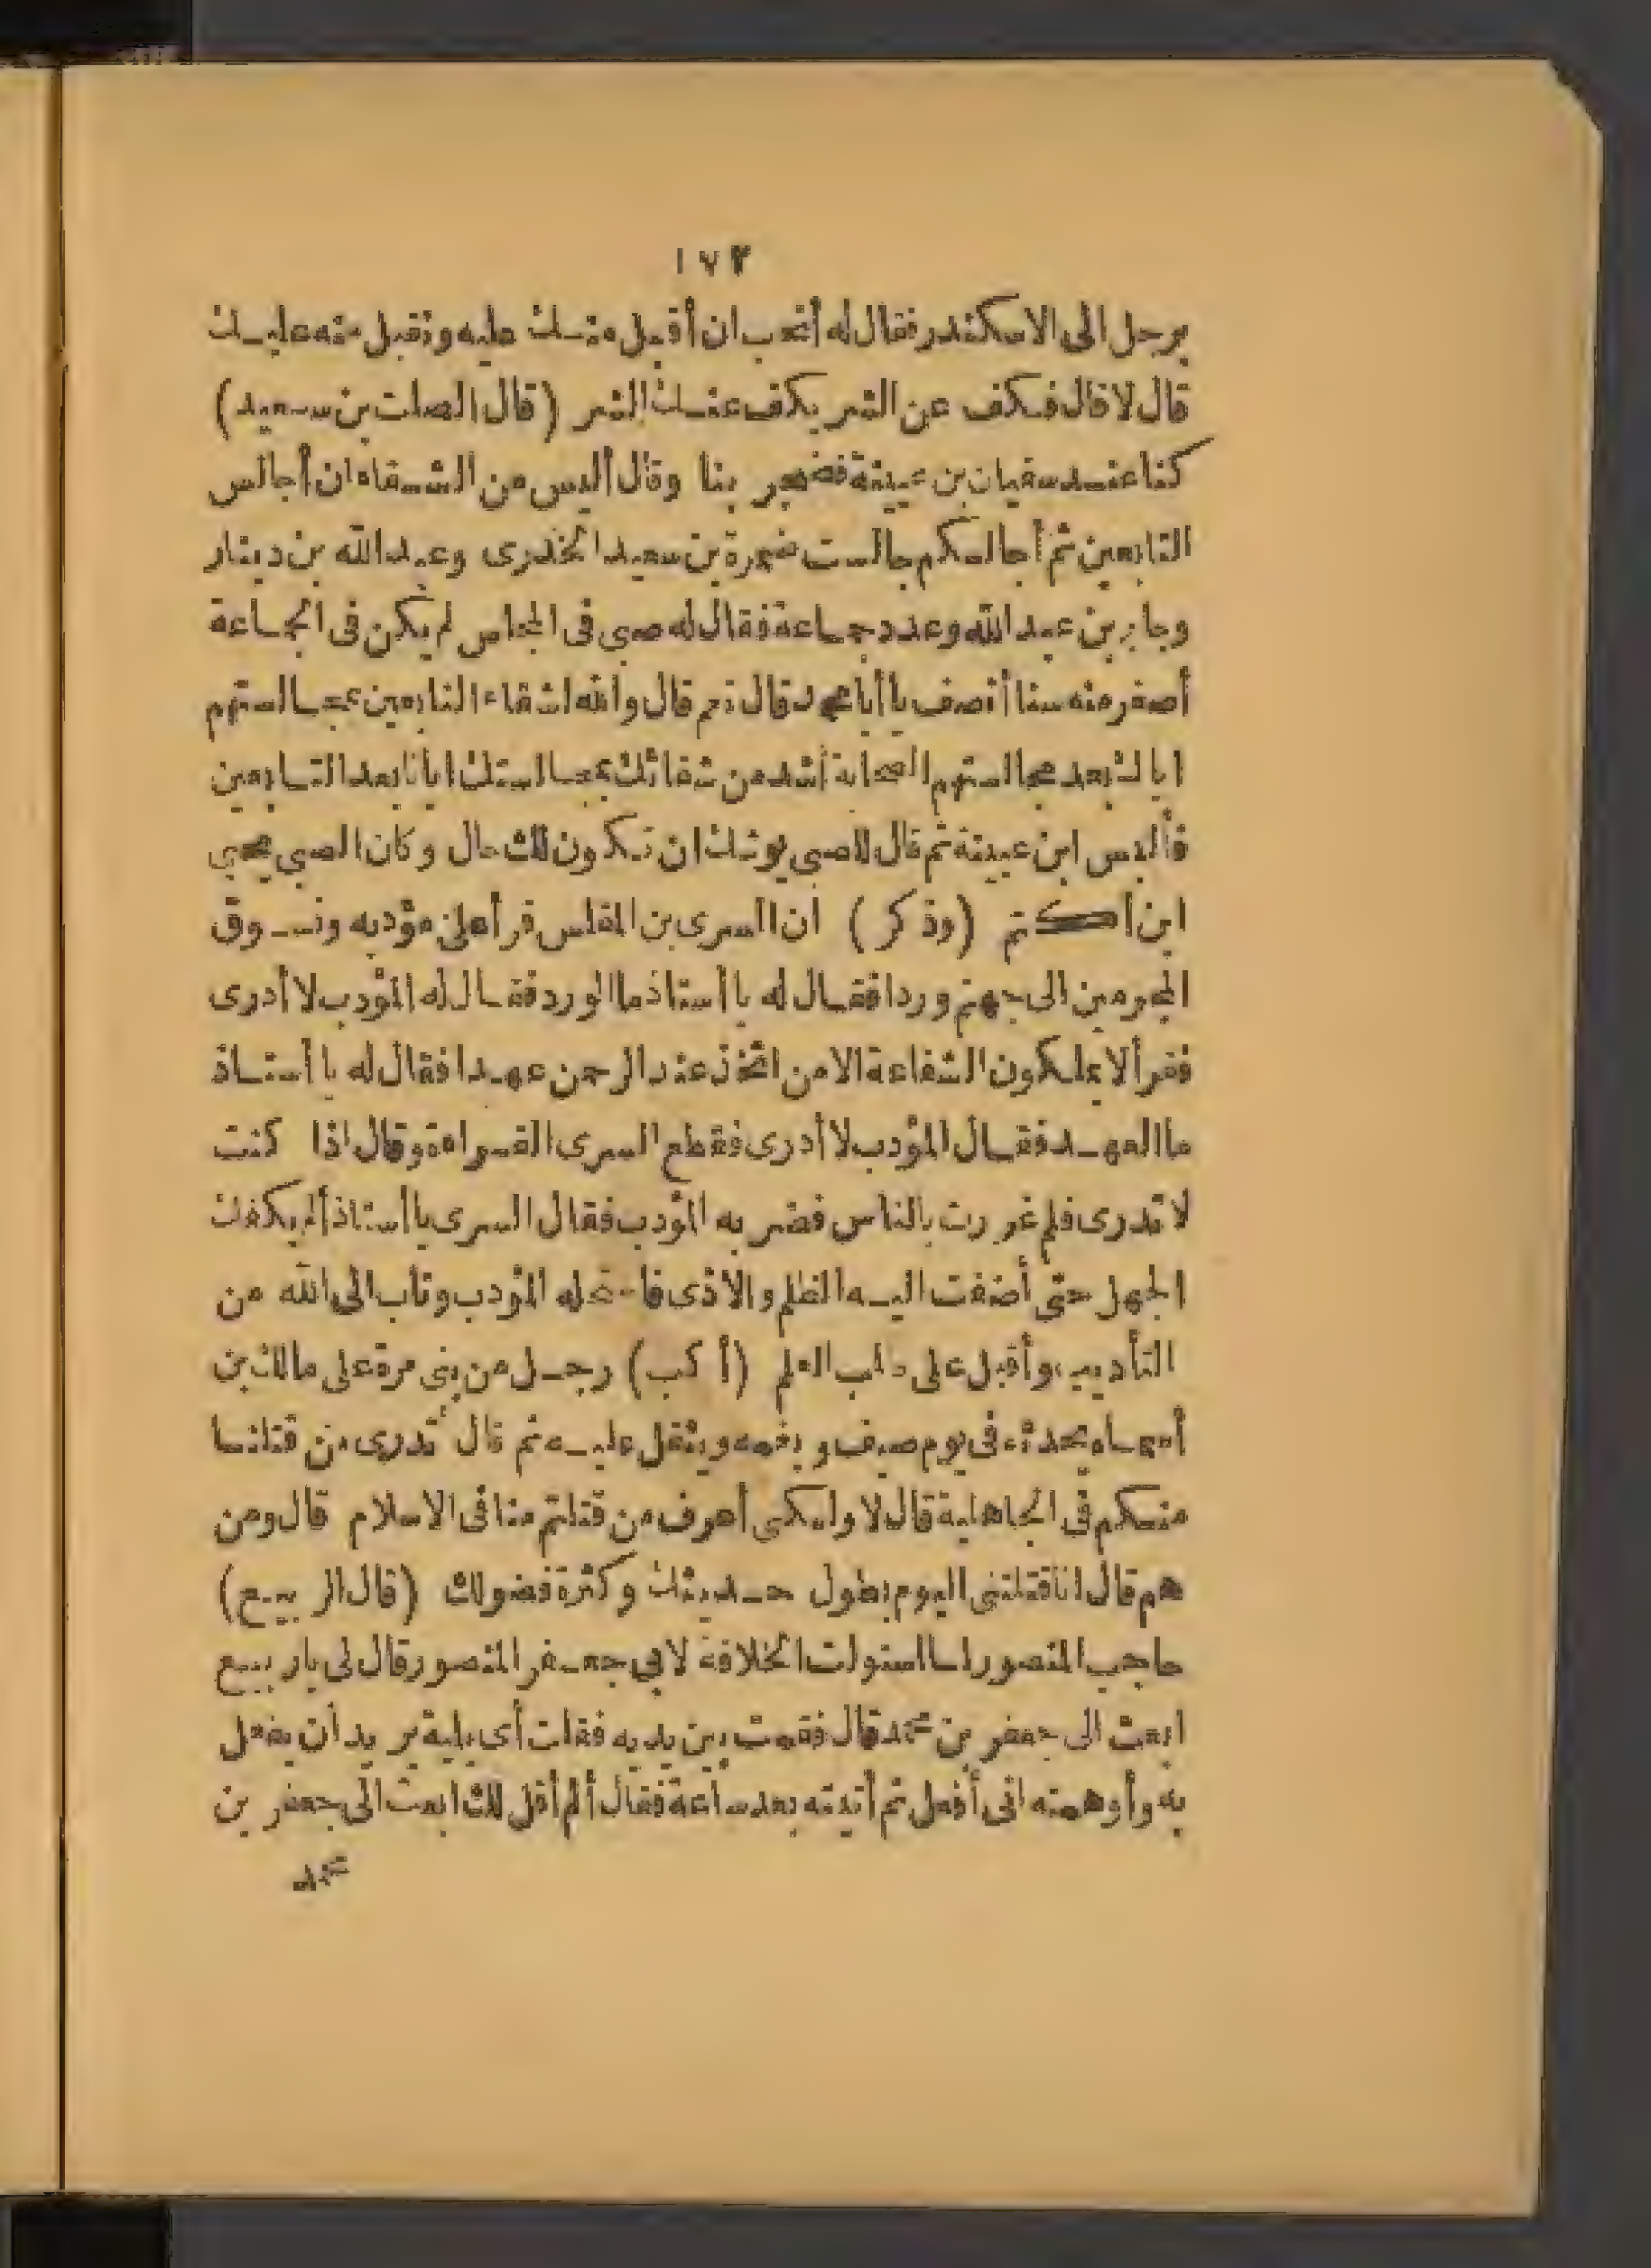 ١٧٢
برجل الى الاسكندر فقال له أتحب ان أقبل منك عليه وتقبل منه عليك
قال لا قال فكف عن الشر يكف عنك الشر (قال الصلت بن سعيد)
كنا عند سفيان بن عيينة فضجر بنا وقال أليس من الشقاء ان أجالس
التابعين ثم أجالسكم جالست ضمرة بن سعيد الخدرى وعبد الله بن دينار
وجابر بن عبد الله وعدد جماعة فقال له صبى فى المجلس لم يكن فى الجماعة
أصغر منه سنا أتنصف يا أبا محمد قال نعم قال والله لشقاء التابعين بمجالستهم
اياك بعد مجالستهم الصحابة أشد من شقائك بمجالستك ايانا بعد التابعين
فأبلس ابن عيينة ثم قال للصبى يوشك ان تكون لك حال وكان الصبى يحيى
ابن أكثم (وذكر) ان السرى بن المغلس قرأ على مؤدبه ونسوق
المجرمين الى جهنم وردا فقال له يا أستاذ ما الورد فقال له المؤدب لا أدرى
فقرأ لا يملكون الشفاعة الا من اتخذ عند الرحمن عهدا فقال له يا أستاذ
ما العهد فقال المؤدب لا أدرى فقطع السرى القراءة وقال اذا كنت
لا تدرى فلم غررت بالناس فضربه المؤدب فقال السرى يا أستاذ ألم يكفك
الجهل حتى أضفت اليه الظلم والاذى فاستحله المؤدب وتاب الى الله من
التأديب وأقبل على طلب العلم (أكب) رجل من بنى مرة على مالك بن
أسماء يحدثه فى يوم صيف ويغمه ويثقل عليه ثم قال تدرى من قتلنا
منكم فى الجاهلية قال لا ولكنى أعرف من قتلتم منا فى الاسلام قال ومن
هم قال انا قتلتنى اليوم بطول حديثك وكثرة فضولك (قال الربيع)
حاجب المنصور لما استوات الخلافة لابى جعفر المنصور قال لى ياربيع
ابعث الى جعفر بن محمد قال فقمت بين يديه فقلت أى بلية يريد أن يفعل
به وأوهمته انى أفعل ثم أتيته بعد ساعة فقال ألم أقل لك ابعث الى جعفر بن
محمد